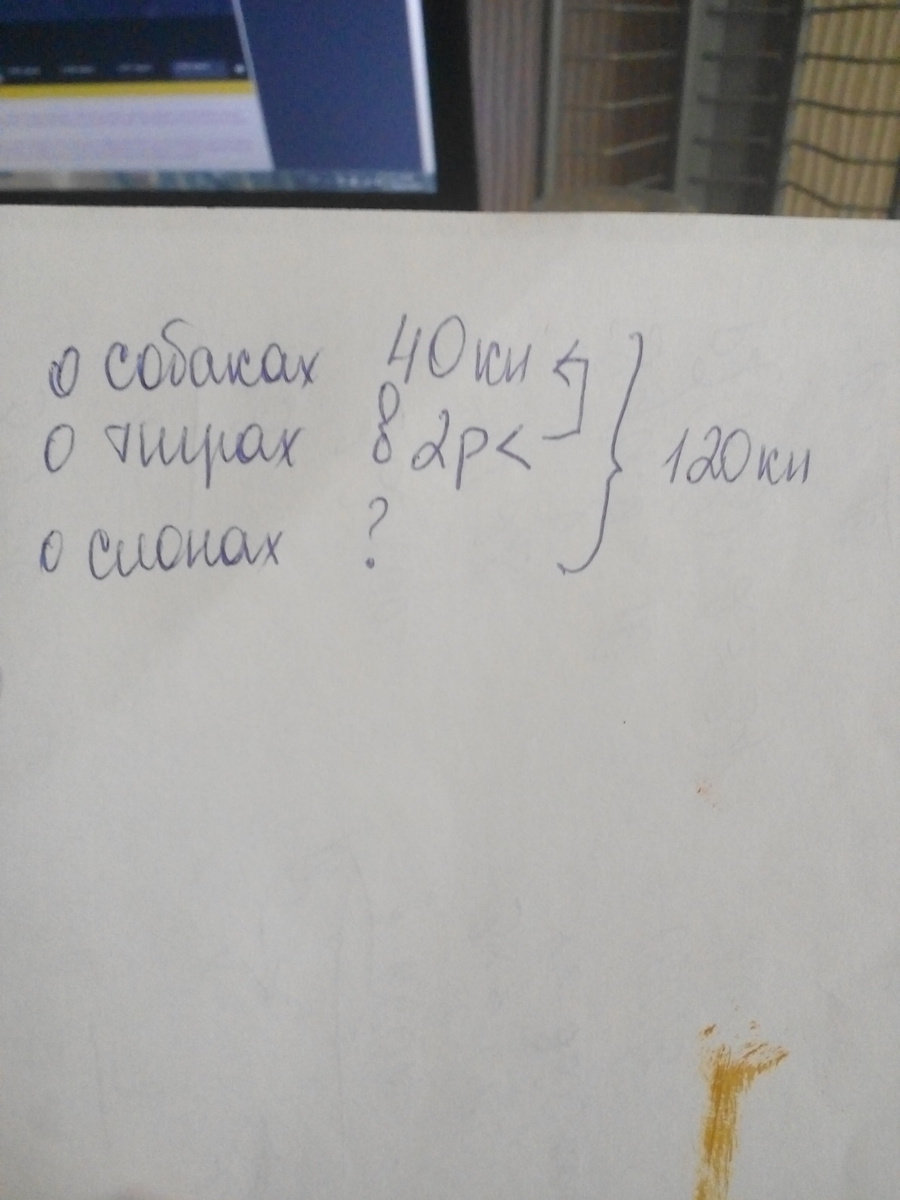 о собаках 40 кн
о тиграх в 2р <
о слонах ?
120 кн